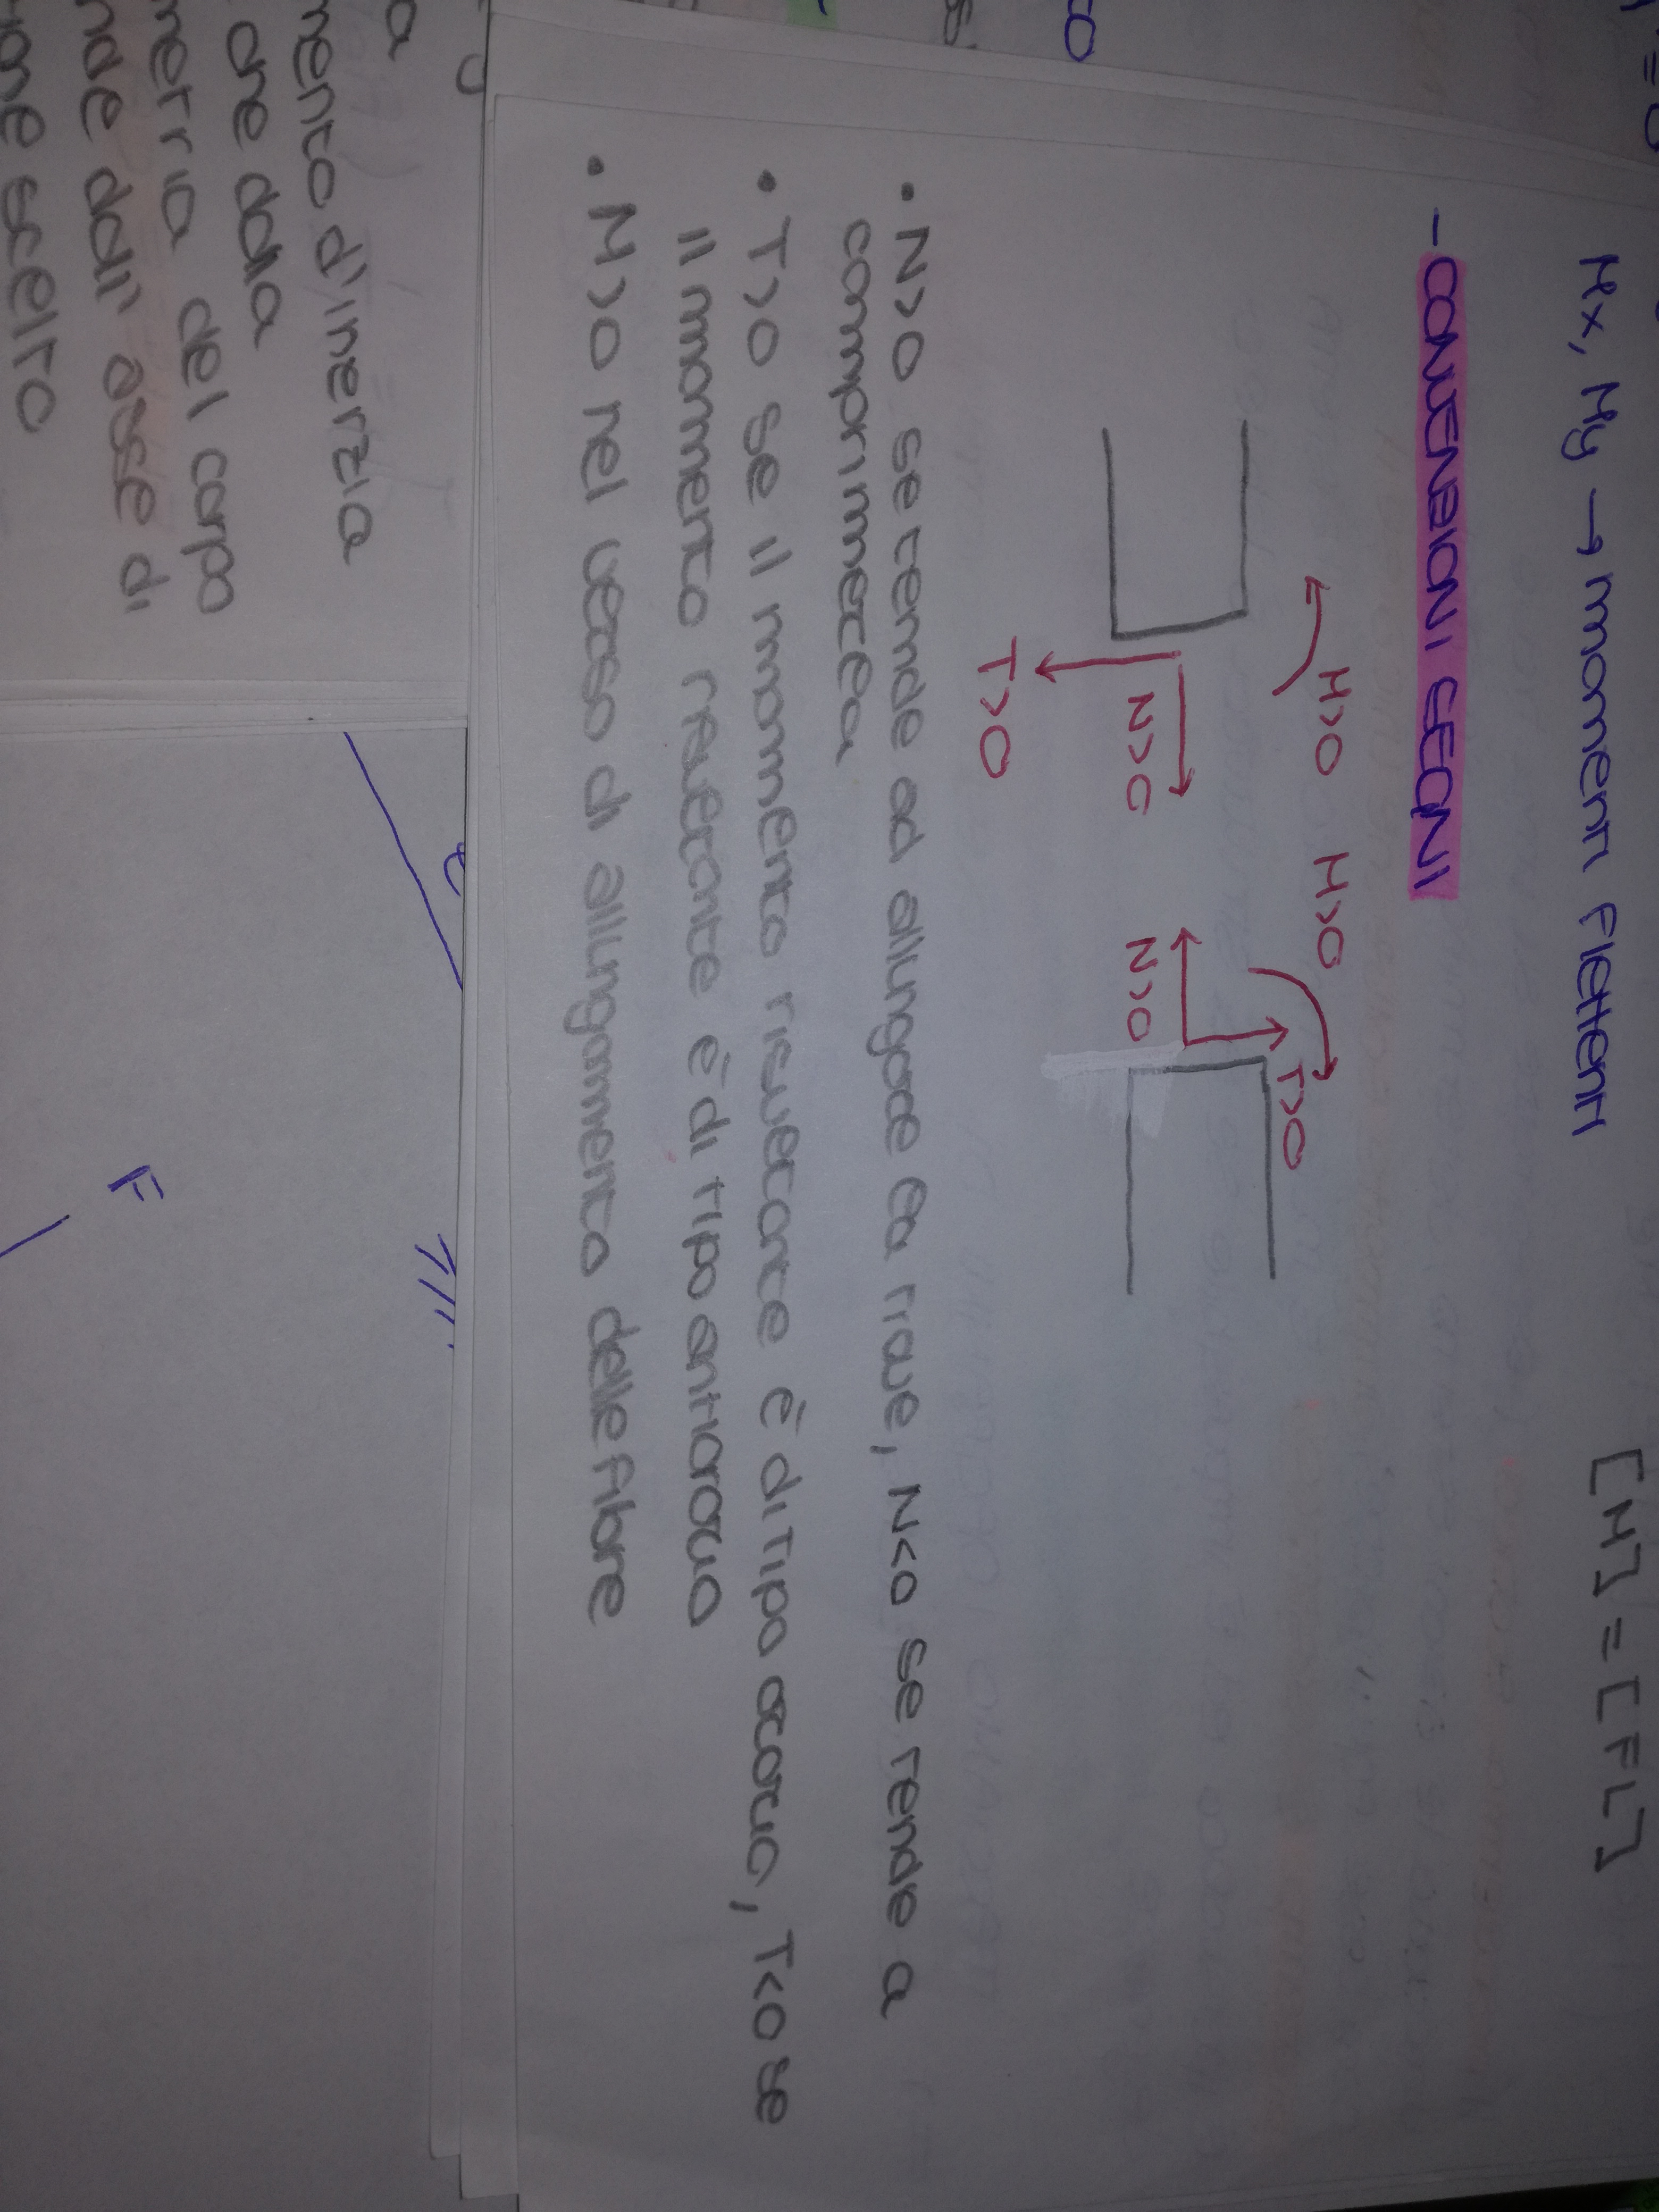 Mx, My → momenti flettenti [M] = [FL]
- CONVENZIONI SEGNI
M>0 M>0
T>0
N>0 N>0
T>0
• N>0 se tende ad allungare la trave, N<0 se tende a
comprimerla
• T>0 se il momento risultante è di tipo orario, T<0 se
il momento risultante è di tipo antiorario
• M>0 nel verso di allungamento delle fibre
a
mento d'inerzia
one dalla
metria del corpo
nde dall' asse di
ione scelto
F